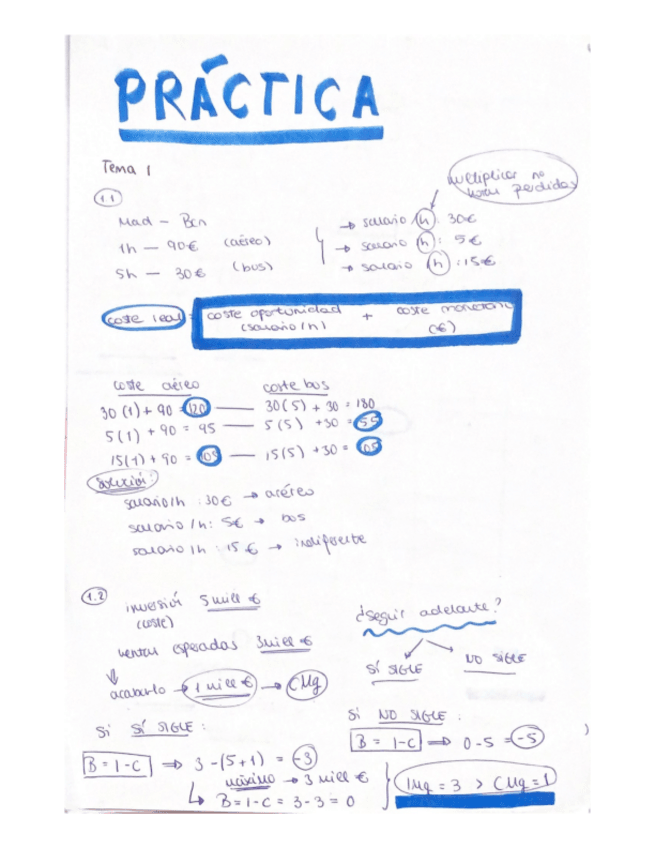 PRÁCTICA
Tema 1
multiplicar no
horas perdidas
1.1
Mad - Bcn
1h — 90€ (aéreo)
5h — 30€ (bus)
→ salario h: 30€
→ salario h: 5€
→ salario h: 15€
coste real = coste oportunidad + coste
(salario/h) (€)
coste aéreo coste bus
30(1) + 90 = 120 — 30(5) + 30 = 180
5(1) + 90 = 95 — 5(5) + 30 = 55
15(1) + 90 = 105 — 15(5) + 30 = 105
Solución:
salario/h: 30€ → aéreo
salario/h: 5€ → bus
salario/h: 15€ → indiferente
1.2
inversión 5 mill €
(coste)
ventas esperadas 3 mill €
acabarlo → 1 mill € → CMg
¿seguir adelante?
SÍ SIGUE NO SIGUE
Si SÍ SIGUE:
B = I-C ⇒ 3-(5+1) = -3
máximo → 3 mill €
↳ B = I-C = 3-3 = 0
Si NO SIGUE:
B = I-C ⇒ 0-5 = -5
IMg = 3 > CMg = 1